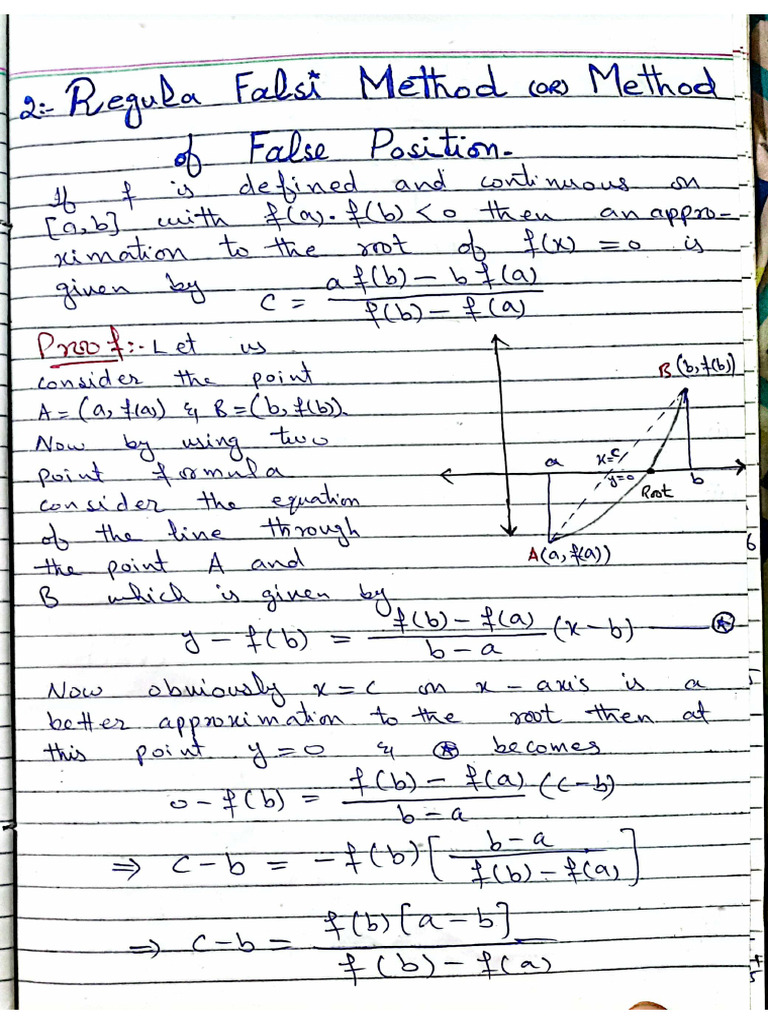 2:- Regula Falsi Method (OR) Method
of False Position.
If f is defined and continuous on
[a,b] with f(a)·f(b)<0 then an appro-
ximation to the root of f(x)=0 is
given by c = (a f(b) - b f(a)) / (f(b) - f(a))
Proof:- Let us
consider the point
A=(a, f(a)) & B=(b, f(b)).
Now by using two
point formula
consider the equation
of the line through
the point A and
B which is given by
B(b, f(b))
a
x=c
y=0
b
Root
A(a, f(a))
6
y - f(b) = (f(b) - f(a)) / (b - a) (x - b) — ⊛
Now obviously x=c on x-axis is a
better approximation to the root then at
this point y=0 & ⊛ becomes
0 - f(b) = (f(b) - f(a)) / (b - a) (c - b)
⇒ c - b = -f(b) [(b - a) / (f(b) - f(a))]
⇒ c - b = f(b)[a - b] / (f(b) - f(a))